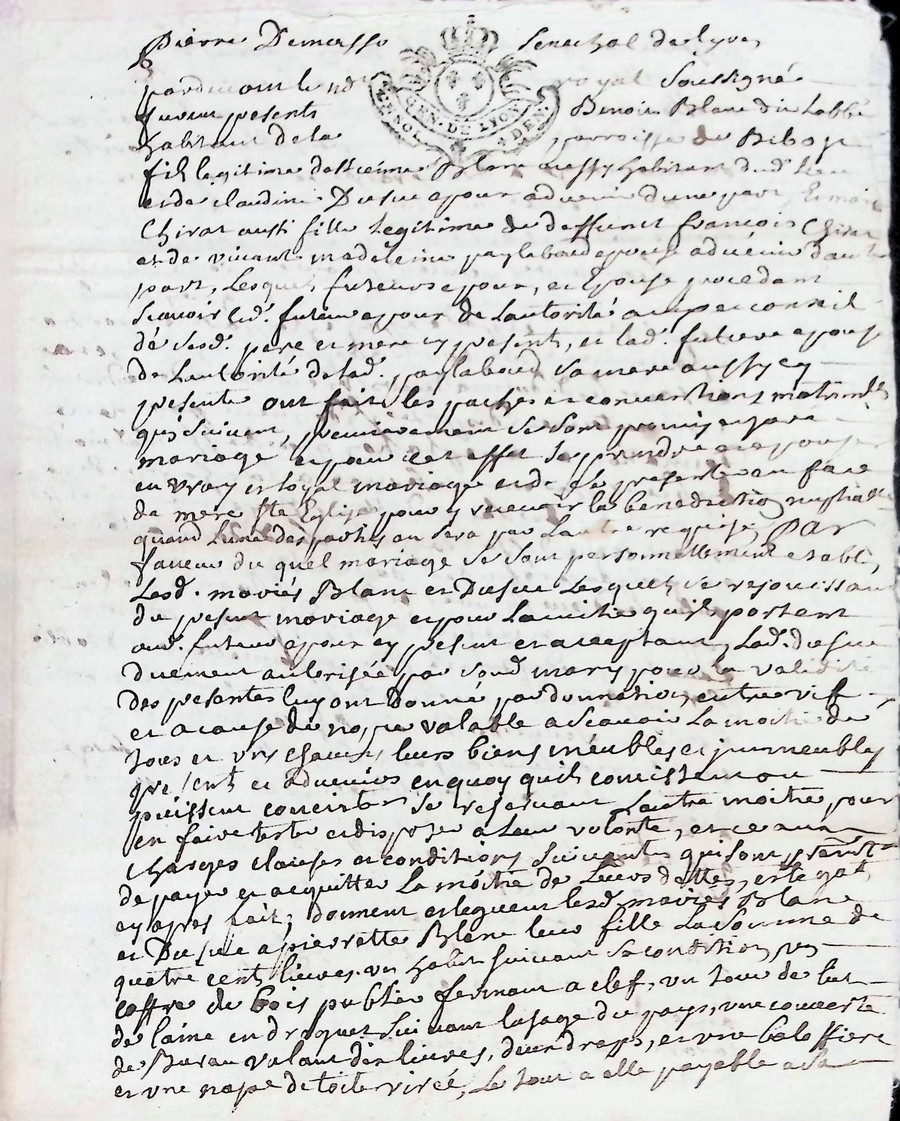 Pierre Demasso Senechal de Lyon
pardevant le nore royal Soussigné
furent presents Benoit Blanc dit Labbé
habitant de la parroisse de Riboy
GEN. DE LYON
2 SOLS
DEN.
fils legitime destienne Blanc aussy habitant dud. Lieu
et de claudine Dusuc epoux advenir dune part, Et marie
Chirat aussi fille Legitime de deffunct françois Chirat
et de vivante madeleine paylaboud epouse advenir dautre
part, Lesquels futeurs epoux, et Epouse procedant
Scavoir led. futur epoux de Lautorité avis et conseil
de sesd. pere et mere cy presents, et lad. future epouse
de Lautorité de lad. paylaboud sa mere aussy cy
presente ont fait les paches et conventions matrimles
qui suivent, premierement se sont promis en
mariage et pour cet effet se prendre et epouser
en vray et loyal mariage et de se presenter en face
de mere ste Eglise pour y recevoir la benediction nuptialle
quand Lune des parties en sera par Lautre requise, Par
faveur du quel mariage se sont personnellement etablis
Lesd. mariés Blanc et Dusuc Lesquels se rejouissant
du present mariage et pour Lamitié quils portent
aud. futeur epoux cy present et acceptant, Lad. dusuc
duement autorisée par sond. mary pour la validité
des presentes luy ont donné par donnation entre vifs
et a cause de nopce valable a Scavoir La moitié de
tous et uns chacuns leurs biens meubles et jmmeubles
presents et advenirs en quoy quils concistent ou
puissent concister se reservant Lautre moitié pour
en faire teste et disposer a Leur volonté, et ce aux
Charges clauses et conditions suivantes qui sont
de payer et acquitter La moitié de Leurs dettes, et legat
cy apres fait; donnent et leguent lesd. mariés Blanc
et Dusuc a pierrette Blanc leur fille La Somme de
quatre cent livres, un habit suivant sa condition, un
coffre de bois publie fermant a clef, un tour de lict
de laine en droguet suivant lusage du pays, une couverte
de Bureau valant dix livres, deux draps, et une balossiere
et une nape de toile virée, Le tout a elle payable a sa